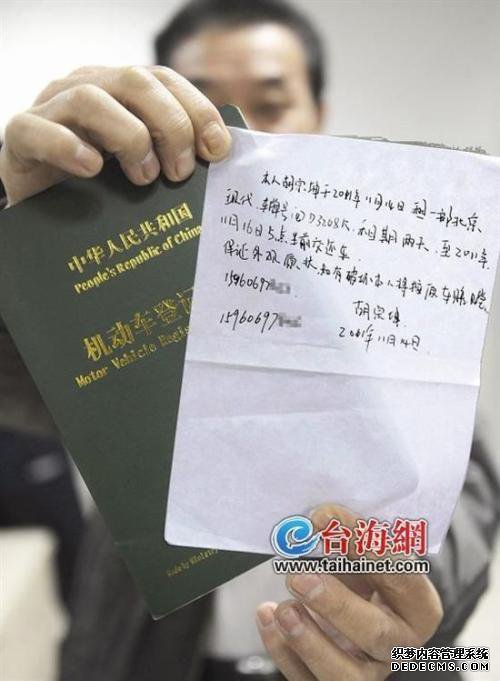 中华人民共和国
People's Republic of China
机动车登记
Motor Vehicle Regist
Made by Ministry
本人胡宗坤于2011年11月14日租一部北京
现代.车牌号:闽D7J208X.租日期两天.至2011年
11月16日5点半前交还车.
保证外观原状.如有破坏本人将按原车赔偿
15960697
胡宗坤
15960697
2011年11月14日
台海網
www.taihainet.com
织梦内容管理系统
DEDECMS.COM